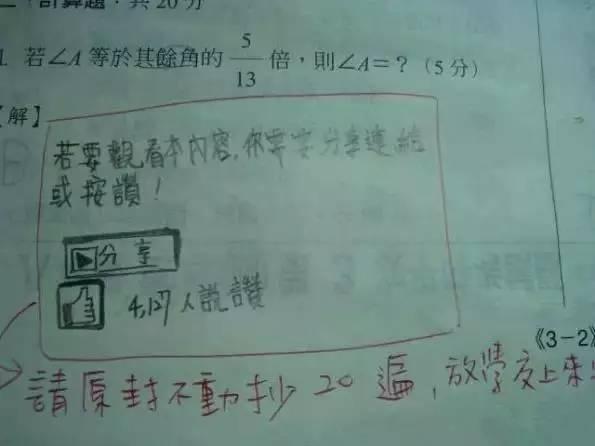 計算題：共20分
1. 若∠A 等於其餘角的 5/13 倍，則∠A=？（5分）
【解】
若要觀看本內容，你要先分享連結
或按讚！
分享
4,127人說讚
《3-2》
請原封不動抄20遍，放學交上來